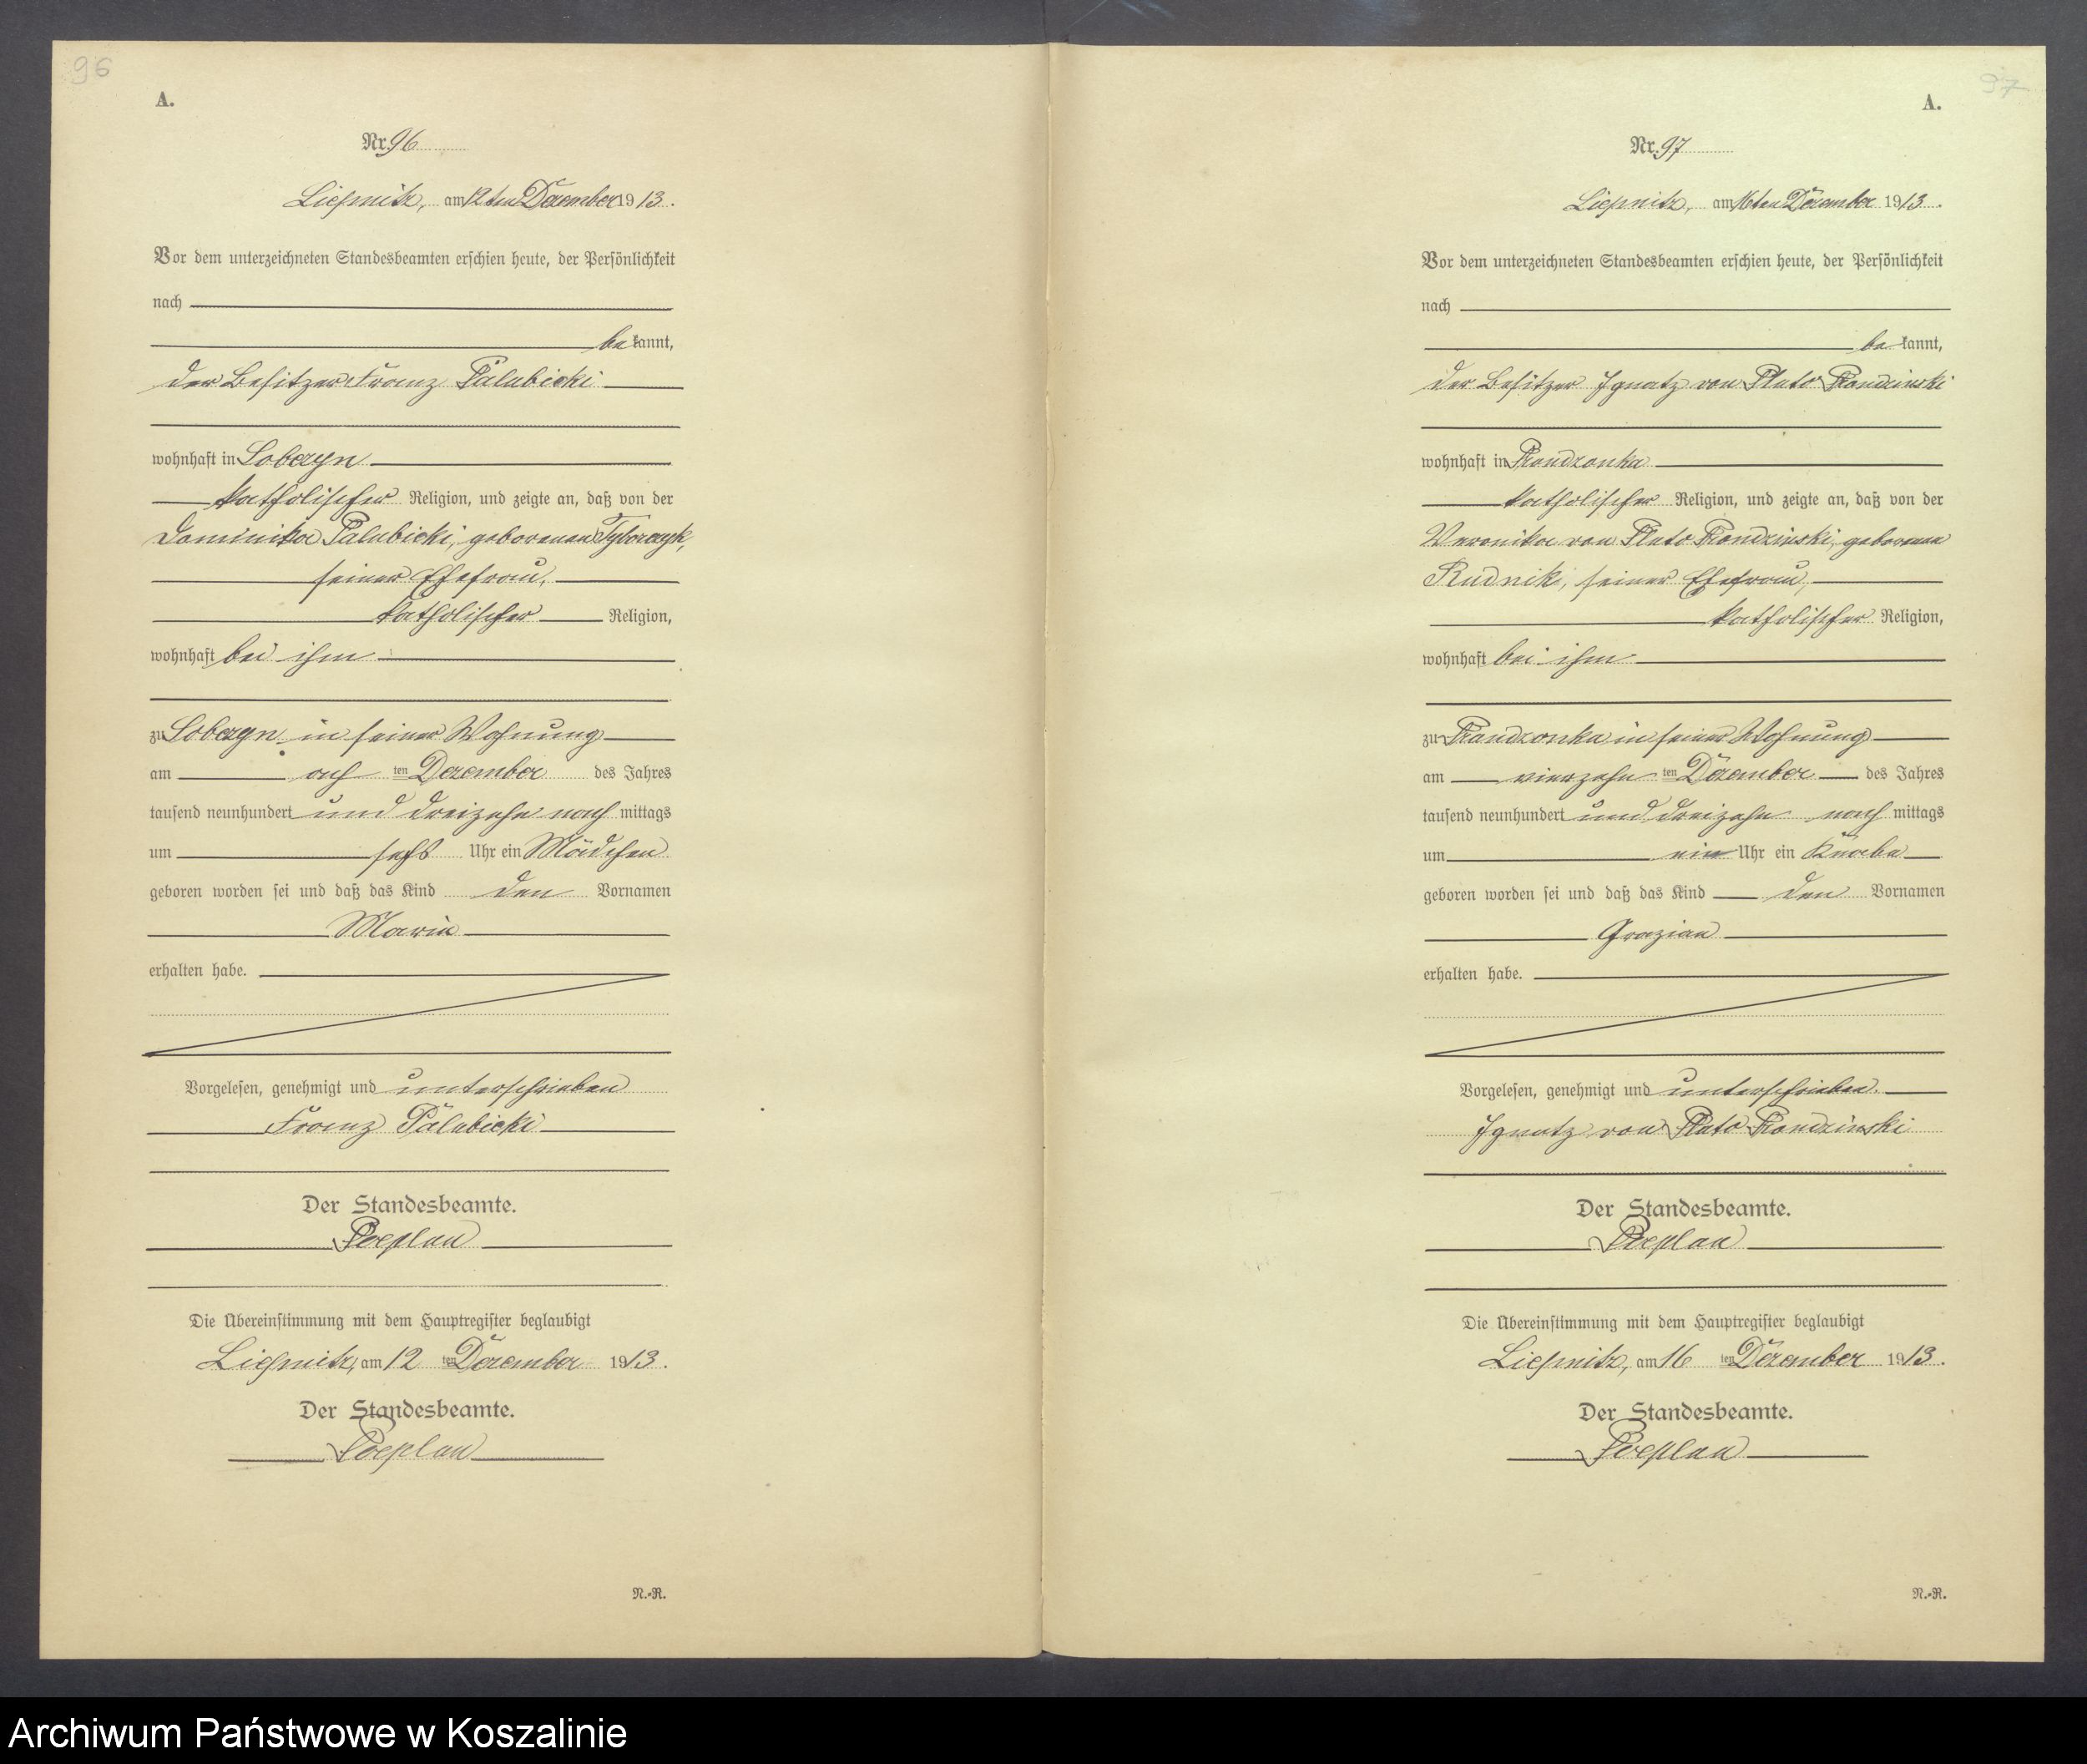 96
A.
Nr. 96
Liepnitz, am 12ten Dezember 1913.
Vor dem unterzeichneten Standesbeamten erschien heute, der Persönlichkeit
nach
bekannt,
der Besitzer Franz Palubicki
wohnhaft in Sobczyn
katholischer Religion, und zeigte an, daß von der
Dominika Palubicki, geborenen
seiner Ehefrau,
katholischer Religion,
wohnhaft bei ihm
zu Sobczyn in seiner Wohnung
am ach ten Dezember des Jahres
tausend neunhundert und dreizehn nach mittags
um sechs Uhr ein Mädchen
geboren worden sei und daß das Kind den Vornamen
Maria
erhalten habe.
Vorgelesen, genehmigt und unterschrieben
Franz Palubicki
Der Standesbeamte.
Poeplau
Die Übereinstimmung mit dem Hauptregister beglaubigt
Liepnitz, am 12 ten Dezember 1913.
Der Standesbeamte.
Poeplau
N.-R.
97
A.
Nr. 97
Liepnitz, am 16ten Dezember 1913.
Vor dem unterzeichneten Standesbeamten erschien heute, der Persönlichkeit
nach
bekannt,
der Besitzer Ignatz von Pluto Prondzinski
wohnhaft in Prondzonka
katholischer Religion, und zeigte an, daß von der
Veronika von Pluto Prondzinski, geborenen
Rudnik, seiner Ehefrau,
katholischer Religion,
wohnhaft bei ihm
zu Prondzonka in seiner Wohnung
am vierzehn ten Dezember des Jahres
tausend neunhundert und dreizehn nach mittags
um ein Uhr ein Knabe
geboren worden sei und daß das Kind den Vornamen
Grazian
erhalten habe.
Vorgelesen, genehmigt und unterschrieben.
Ignatz von Pluto Prondzinski
Der Standesbeamte.
Poeplau
Die Übereinstimmung mit dem Hauptregister beglaubigt
Liepnitz, am 16 ten Dezember 1913.
Der Standesbeamte.
Poeplau
N.-R.
Archiwum Państwowe w Koszalinie